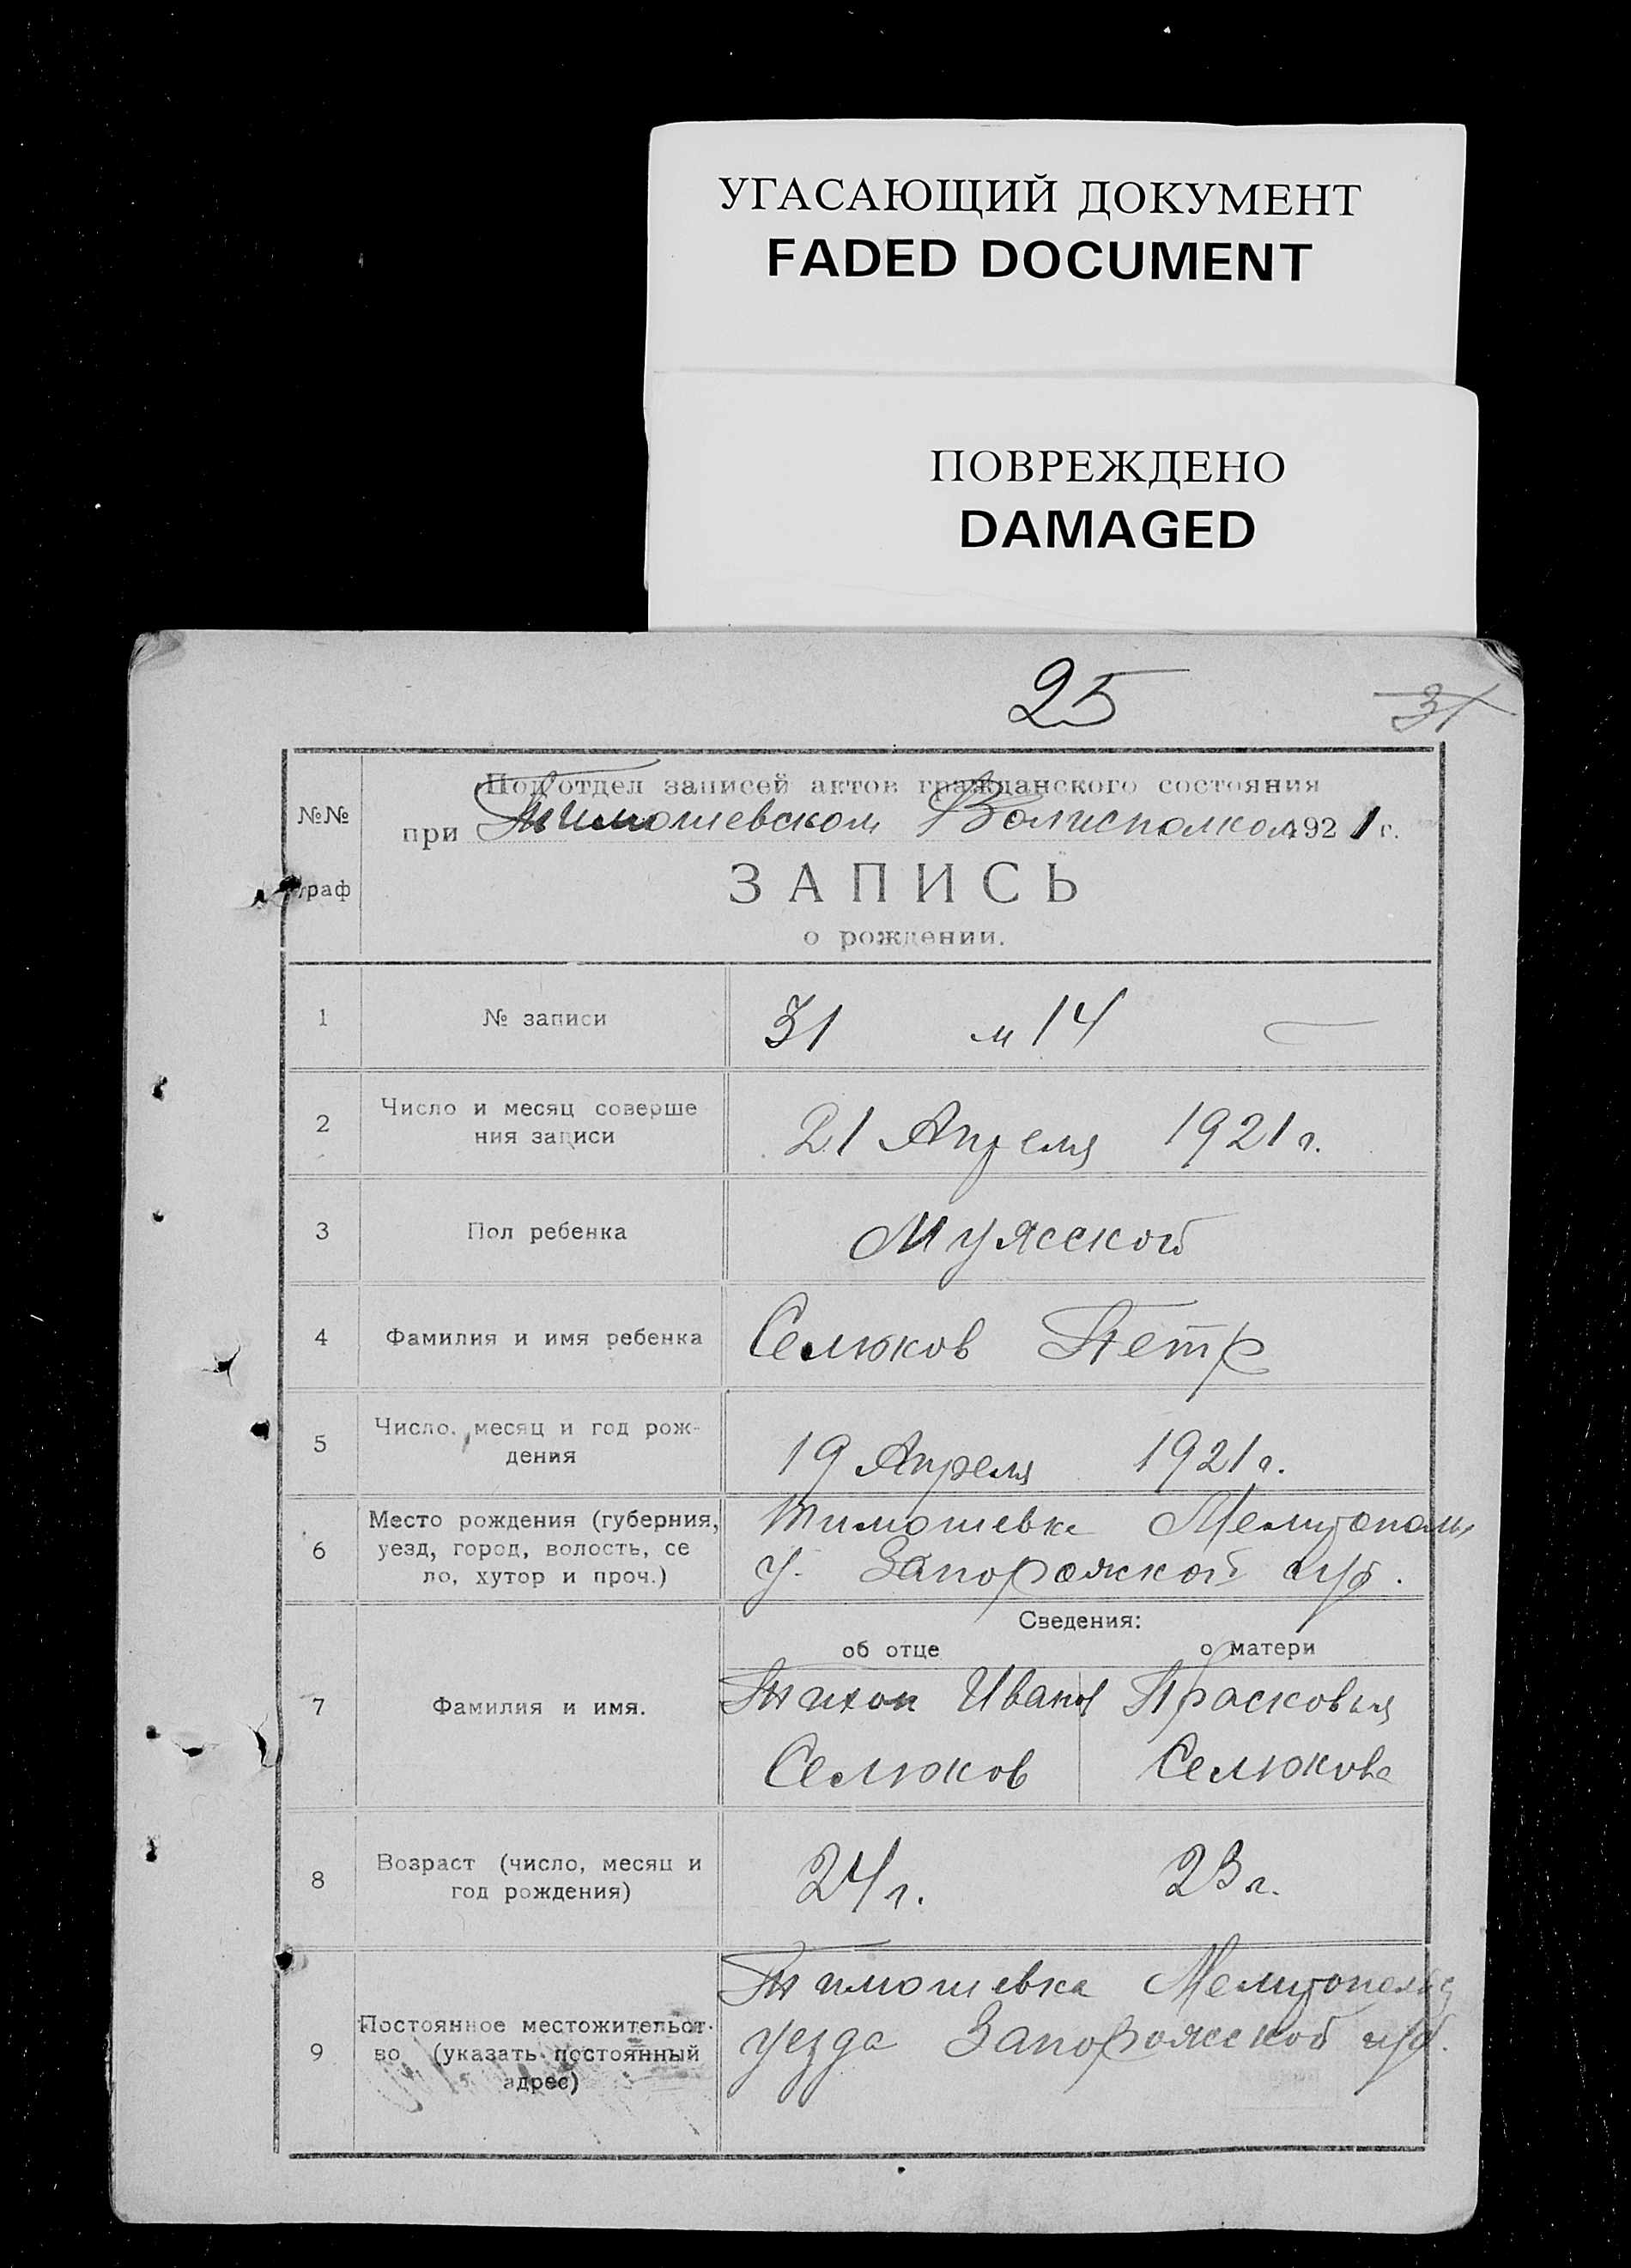 УГАСАЮЩИЙ ДОКУМЕНТ
FADED DOCUMENT
ПОВРЕЖДЕНО
DAMAGED
25
31
Под'отдел записей актов гражданского состояния
№№ при Тимошевском Волисполком 1921 г.
граф
ЗАПИСЬ
о рождении.
1 № записи 31 м 14
2 Число и месяц соверше
ния записи 21 Апреля 1921 г.
3 Пол ребенка Мужской
4 Фамилия и имя ребенка Селюков Петр
5 Число, месяц и год рож-
дения 19 Апреля 1921 г.
6 Место рождения (губерния, Тимошевка Мелитополь
уезд, город, волость, се у. Запорожской губ.
ло, хутор и проч.)
Сведения:
об отце о матери
7 Фамилия и имя. Тихон Иванов Прасковья
Селюков Селюкова
8 Возраст (число, месяц и
год рождения) 24 г. 23 г.
9 Постоянное местожительст-
во (указать постоянный
адрес) Тимошевка Мелитопольс
уезда Запорожской губ.